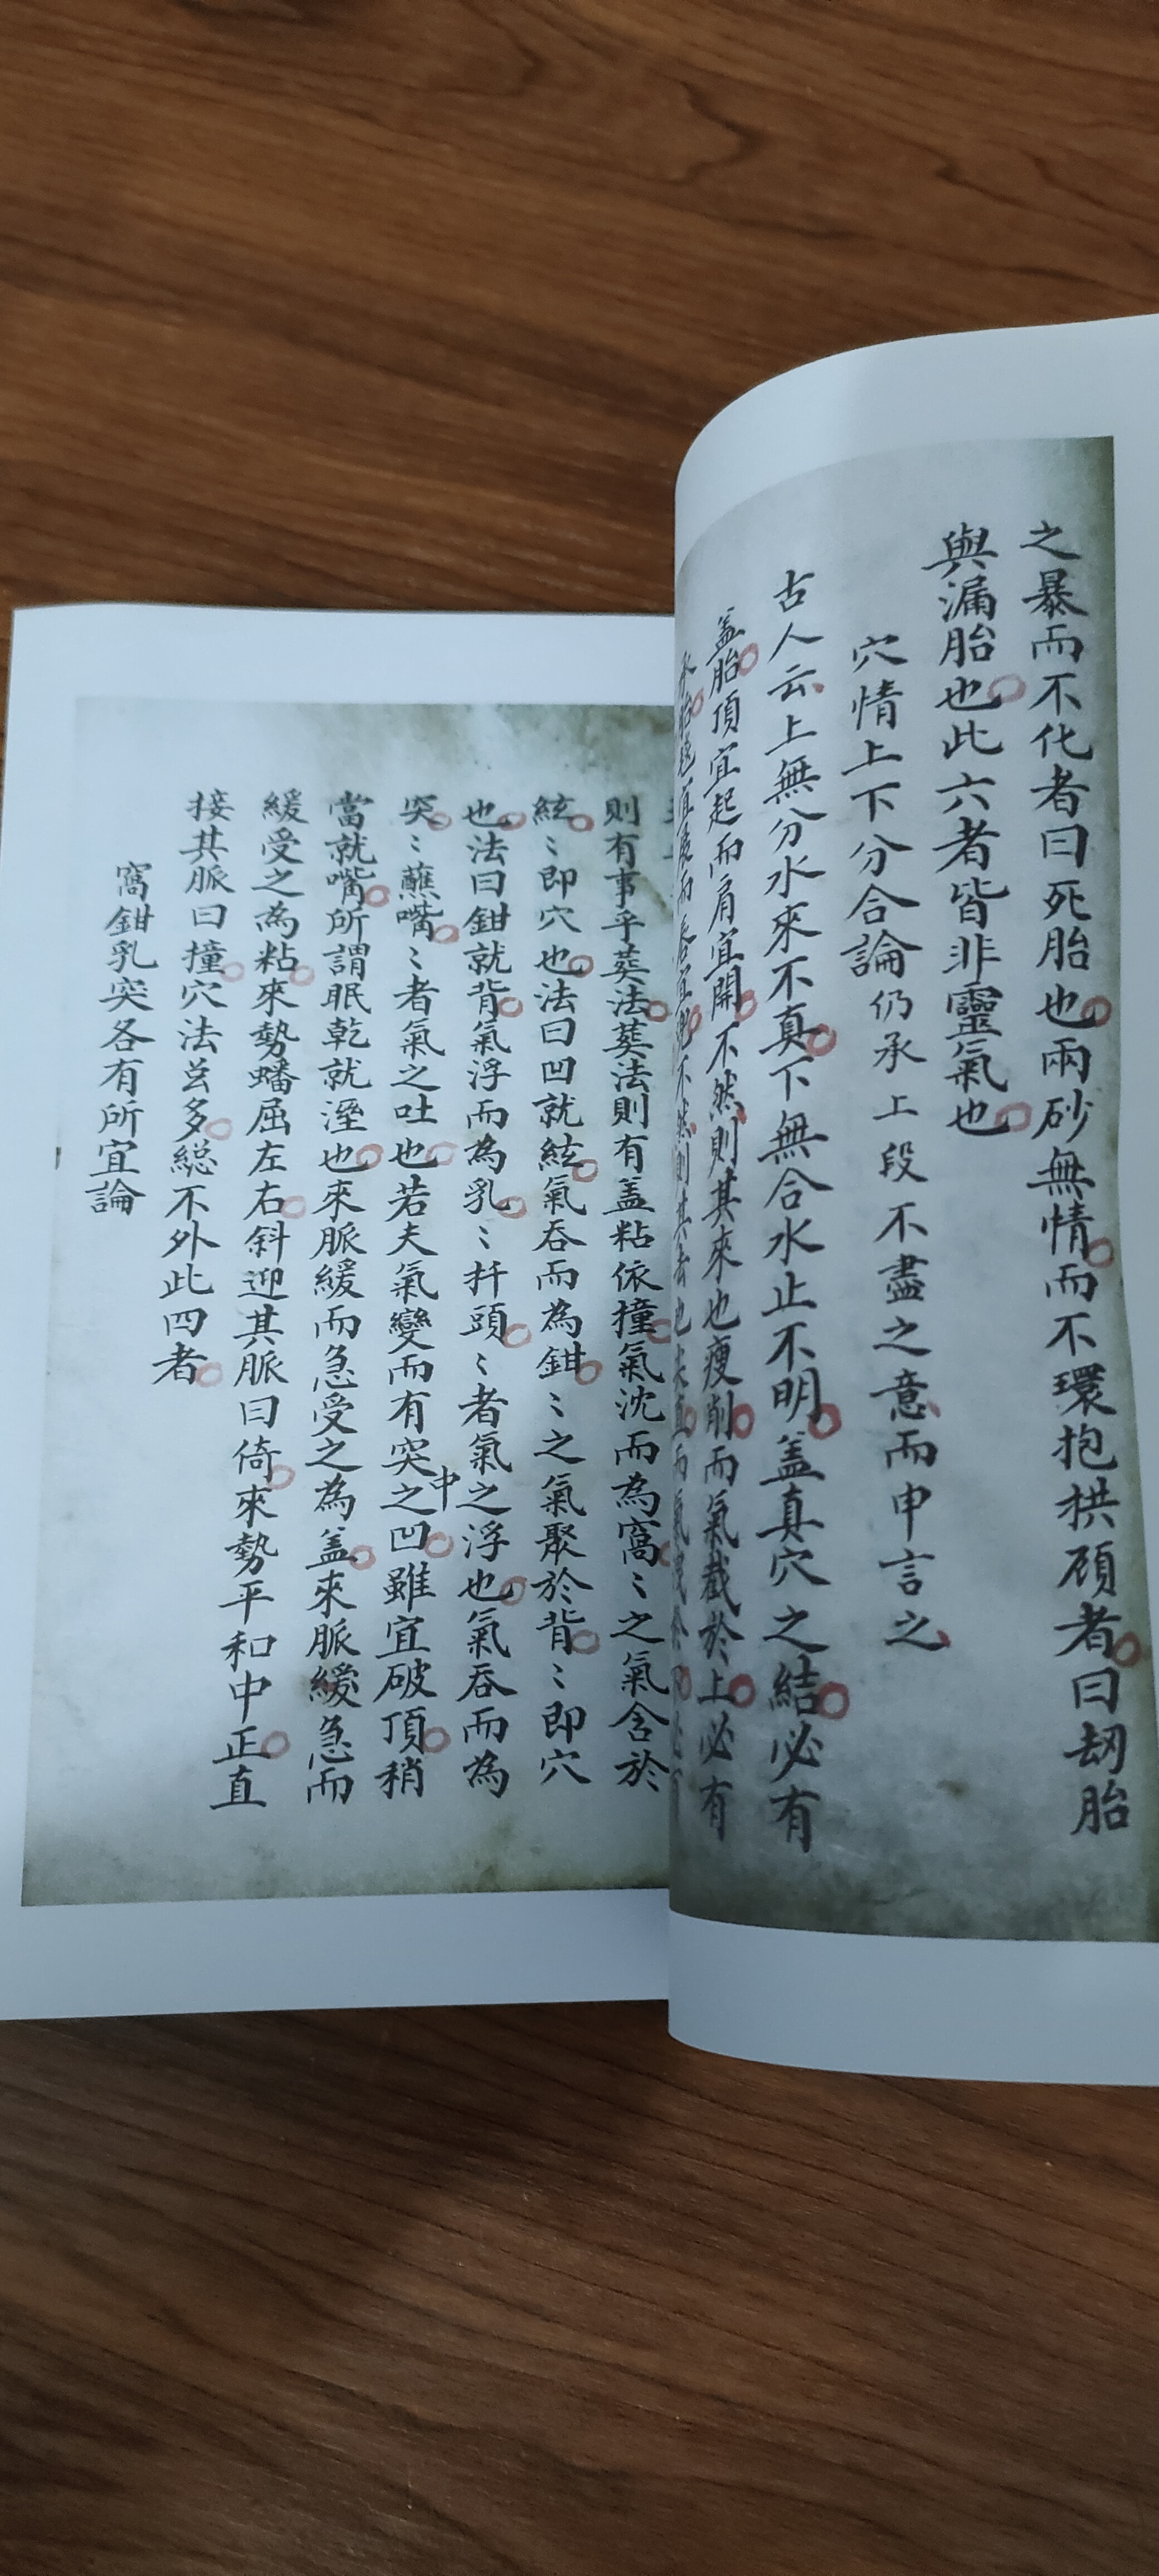 之暴而不化者曰死胎也兩砂無情而不環抱拱顧者曰刼胎
與漏胎也此六者皆非靈氣也
穴情上下分合論仍承上段不盡之意而申言之
古人云上無分水來不真下無合水止不明盖真穴之結必有
盖胎頂宜起而肩宜開不然則其來也瘦削而氣截於上必有
不然則其去也
則有事乎葬法葬法則有盖粘依撞氣沈而為窩〻之氣含於
絃〻即穴也法曰凹就絃氣吞而為鉗〻之氣聚於背〻即穴
也法曰鉗就背氣浮而為乳〻扦頭〻者氣之浮也氣吞而為
突〻蘸嘴〻者氣之吐也若夫氣變而有突之中凹雖宜破頂稍
當就嘴所謂眠乾就溼也來脈緩而急受之為盖來脈緩急而
緩受之為粘來勢蟠屈左右斜迎其脈曰倚來勢平和中正直
接其脈曰撞穴法芸多總不外此四者
窩鉗乳突各有所宜論